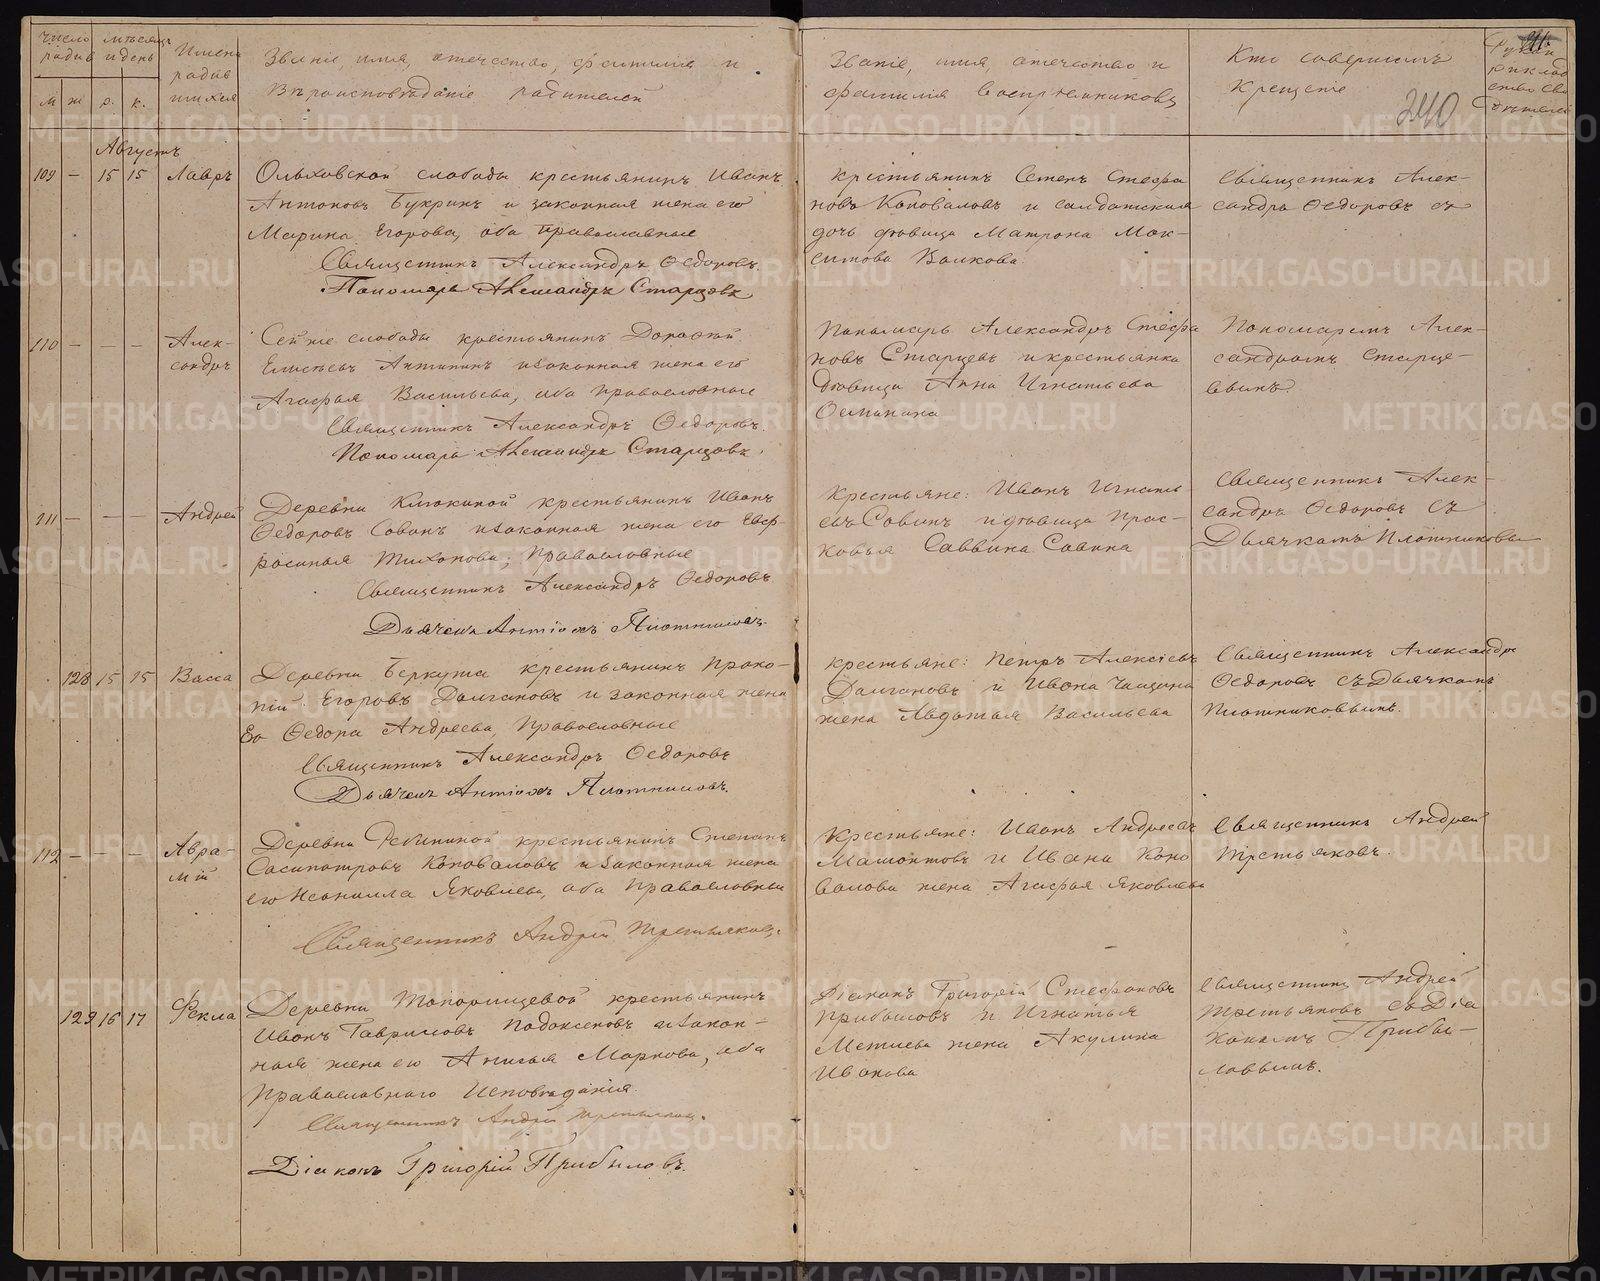 число родив
мѣсяцъ и день
Имена родив шихся
Званіе, имя, отечество, фамилія и
Вѣроисповѣданіе родителей
Званіе, имя, отечество и
фамилія воспріемниковъ
Кто совершалъ
Крещеніе
240
м ж р. к.
Августъ
109 — 15 15 Лавръ
Ольховской слободы крестьянинъ Иванъ
Антоновъ Букринъ и законная жена его
Марина Егорова, оба православные
Священникъ Александръ Ѳедоровъ.
Пономарь Александръ Старцовъ
крестьянинъ Степ Стефа
новъ Коноваловъ и солдатская
дочь дѣвица Матрона Мак-
симова Волкова
Священникъ Алек-
сандръ Ѳедоровъ съ
110 — — — Алек-
сандръ
Сей же слободы крестьянинъ Дороѳей
Елисѣевъ Антипинъ и законная жена его
Агафья Васильева, оба православные
Священникъ Александръ Ѳедоровъ.
Пономарь Александръ Старцовъ.
Пономарь Александръ Стефа
новъ Старцевъ и крестьянка
дѣвица Анна Игнатьева
Пономаремъ Алек-
сандромъ Старце-
вымъ.
111 — — — Андрей
Деревни Клюкиной крестьянинъ Иванъ
Ѳедоровъ Совинъ и законная жена его Евф-
росинья Тихонова; православные
Священникъ Александръ Ѳедоровъ
Дьячекъ Антіохъ Плотниковъ
Крестьяне: Иванъ Игнать
евъ Совинъ и дѣвица Прас-
ковья Саввина Совина
Священникъ Алек-
сандръ Ѳедоровъ съ
Дьячкомъ Плотниковы
128 15 15 Васса
Деревни Беркута крестьянинъ Проко-
пій Егоровъ Долгановъ и законная жена
Его Ѳедора Андреева, Православные
Священникъ Александръ Ѳедоровъ
Дьячекъ Антіохъ Плотниковъ.
крестьяне: Петръ Алексѣевъ
Долгановъ и Ивана
жена Авдотья Васильева
Священникъ Александръ
Ѳедоровъ съ Дьячкомъ
Плотниковымъ.
112 — — — Авра-
мій
Деревни крестьянинъ Степанъ
Сосипатровъ Коноваловъ и законная жена
его Неонилла Яковлева, оба Православные
Священникъ Андрей Третьяковъ.
Крестьяне: Иванъ Андреевъ
Мамонтовъ и Ивана Коно
валова жена Агафья Яковлева
Священникъ Андрей
Третьяковъ.
129 16 17 Фекла
Деревни Топорищевой крестьянинъ
Иванъ Гавриловъ Подоксеновъ и закон-
ная жена его Анисья Маркова, оба
Православнаго Исповѣданія.
Священникъ Андрей Третьяковъ.
Діаконъ Григорій Прибыловъ.
Діаконъ Григорій Стефановъ
Прибыловъ и Игнатья
жена Акулина
Иванова
Священникъ Андрей
Третьяковъ съ Діа
кономъ Прибы-
ловымъ.
METRIKI.GASO-URAL.RU